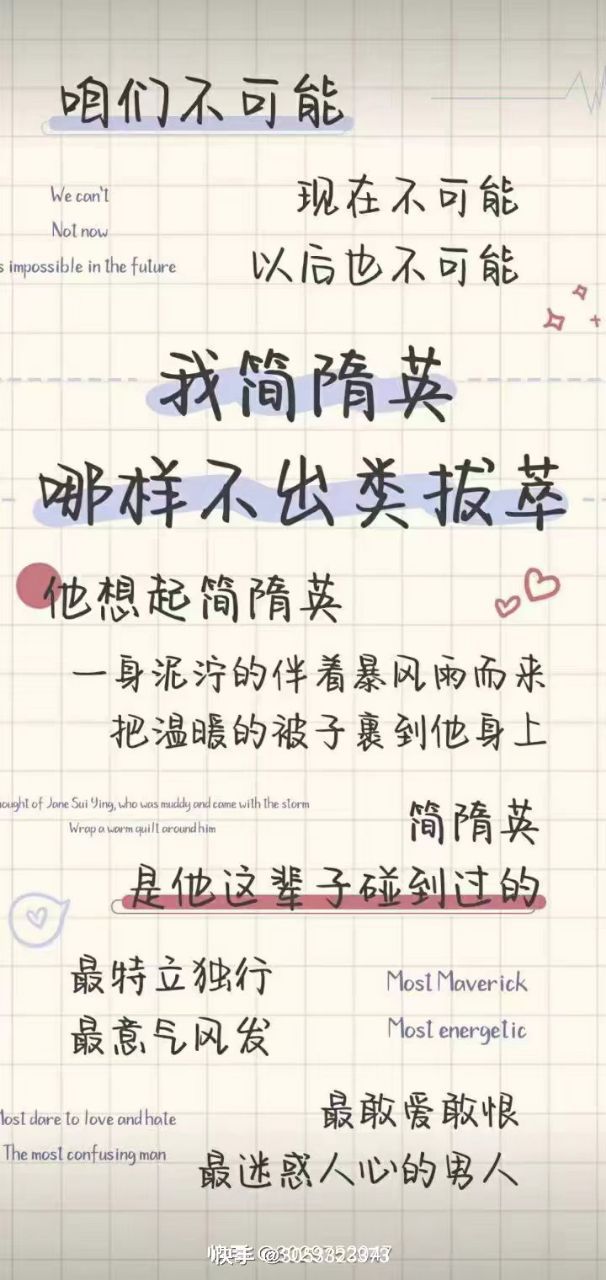 咱们不可能
We can't
现在不可能
Not now
s impossible in the future
以后也不可能
我简隋英
哪样不出类拔萃
他想起简隋英
一身泥泞的伴着暴风雨而来
把温暖的被子裹到他身上
ought of Jane Sui Ying, who was muddy and came with the storm
Wrap a warm quilt around him
简隋英
是他这辈子碰到过的
最特立独行
Most Maverick
最意气风发
Most energetic
Most dare to love and hate
最敢爱敢恨
The most confusing man
最迷惑人心的男人
快手